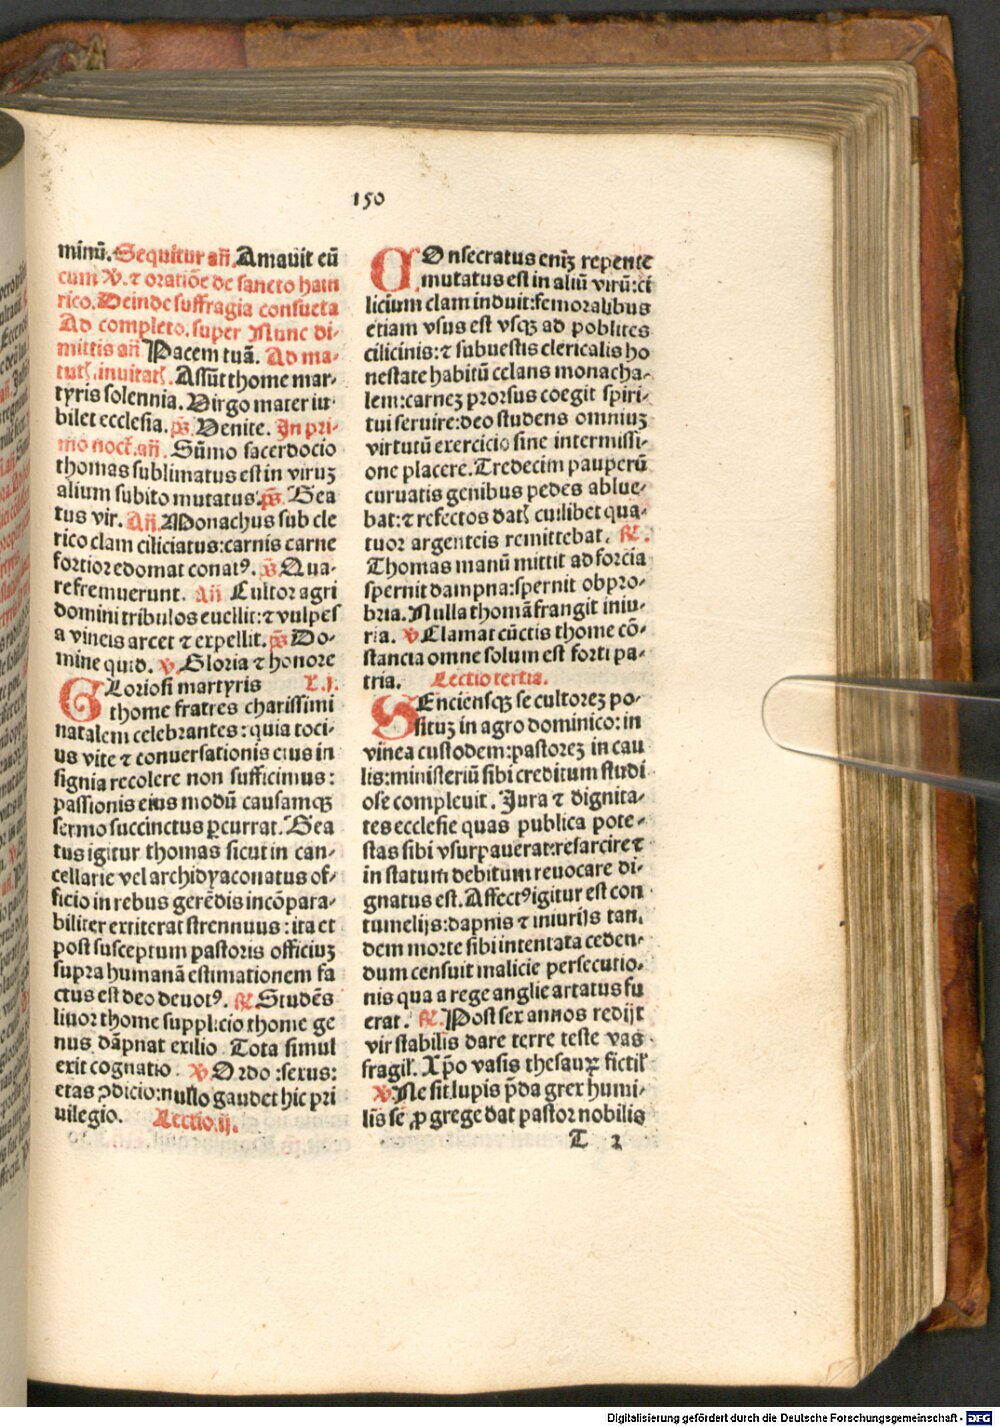 150
minū. Sequitur añ. Amauit eū
cum ℣. ⁊ oratiōe de sancto hain
rico. Deinde suffragia consueta
Ad completo. super Nunc di-
mittis añ Pacem tuā. Ad ma-
tuť. inuitať. Assūt thome mar-
tyris solennia. Virgo mater iu-
bilet ecclesia. ps̄. Venite. In pri-
mo noct̄. añ. Sūmo sacerdocio
thomas sublimatus est in viruꝫ
alium subito mutatus. ps̄. Bea
tus vir. Añ. Monachus sub cle
rico clam ciliciatus: carnis carne
fortior edomat conatꝰ. ps̄. Qua-
re fremuerunt. Añ Cultor agri
domini tribulos euellit: ⁊ vulpes
a vineis arcet ⁊ expellit. ps̄ Do-
mine quid. ℣. Gloria ⁊ honore
Gloriosi martyris L. j.
thome fratres charissimi
natalem celebrantes: quia toci-
us vite ⁊ conuersationis eius in
signia recolere non sufficimus:
passionis eius modū causamqꝫ
sermo succinctus ꝑcurrat. Bea
tus igitur thomas sicut in can-
cellarie vel archidyaconatus of-
ficio in rebus gerēdis incōpara-
biliter extiterat strennuus: ita et
post susceptum pastoris officiuꝫ
supra humanā estimationem fa
ctus est deo deuotꝰ. ℟. Studēs
liuor thome supplicio thome ge
nus dāpnat exilio. Tota simul
exit cognatio. ℣. Ordo: sexus:
etas ꝯdicio: nullo gaudet hic pri
uilegio. Lectio. ij.
COnsecratus enīꝫ repente
mutatus est in aliū virū: ci
licium clam induit: femoralibus
etiam vsus est vsqꝫ ad poblites
cilicinis: ⁊ sub vestis clericalis ho
nestate habitū celans monacha-
lem: carneꝫ prorsus coegit spiri-
tui seruire: deo studens omniuꝫ
virtutū exercicio sine intermissi-
one placere. Tredecim pauperū
curuatis genibus pedes ablue-
bat: ⁊ refectos dať cuilibet qua-
tuor argenteis remittebat. ℟.
Thomas manū mittit ad forcia
spernit dampna: spernit obpro-
bria. Nulla thomā frangit iniu-
ria. ℣ Clamat cūctis thome cō-
stancia omne solum est forti pa-
tria. Lectio tertia.
SEnciensqꝫ se cultoreꝫ po-
situꝫ in agro dominico: in
vinea custodem: pastoreꝫ in cau
lis: ministeriū sibi creditum studi
ose compleuit. Jura ⁊ dignita-
tes ecclesie quas publica pote-
stas sibi vsurpauerat: resarcire ⁊
in statum debitum reuocare di-
gnatus est. Affectꝰ igitur est con
tumelijs: dāpnis ⁊ iniurijs tan,
dem morte sibi intentata ceden-
dum censuit malicie persecutio-
nis qua a rege anglie artatus fu
erat. ℟. Post sex annos redijt
vir stabilis dare terre teste vas
fragiľ. Xp̄o vasis thesaurꝝ fictiľ
℣ Ne sit lupis p̄da grex humi-
lis sē ꝓ grege dat pastor nobilis
T 2
Digitalisierung gefördert durch die Deutsche Forschungsgemeinschaft - DFG